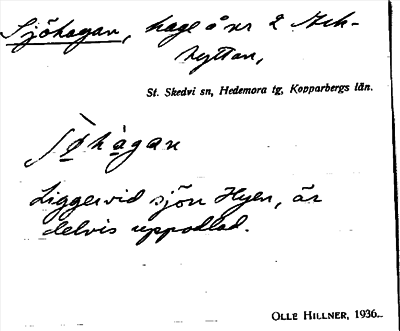 Sjöhagan, hage å nr 2
hyttan,
St. Skedvi sn, Hedemora tg, Kopparbergs län.
Ligger vid sjön Hyen, är
delvis uppodlad.
OLLE HILLNER, 1936.